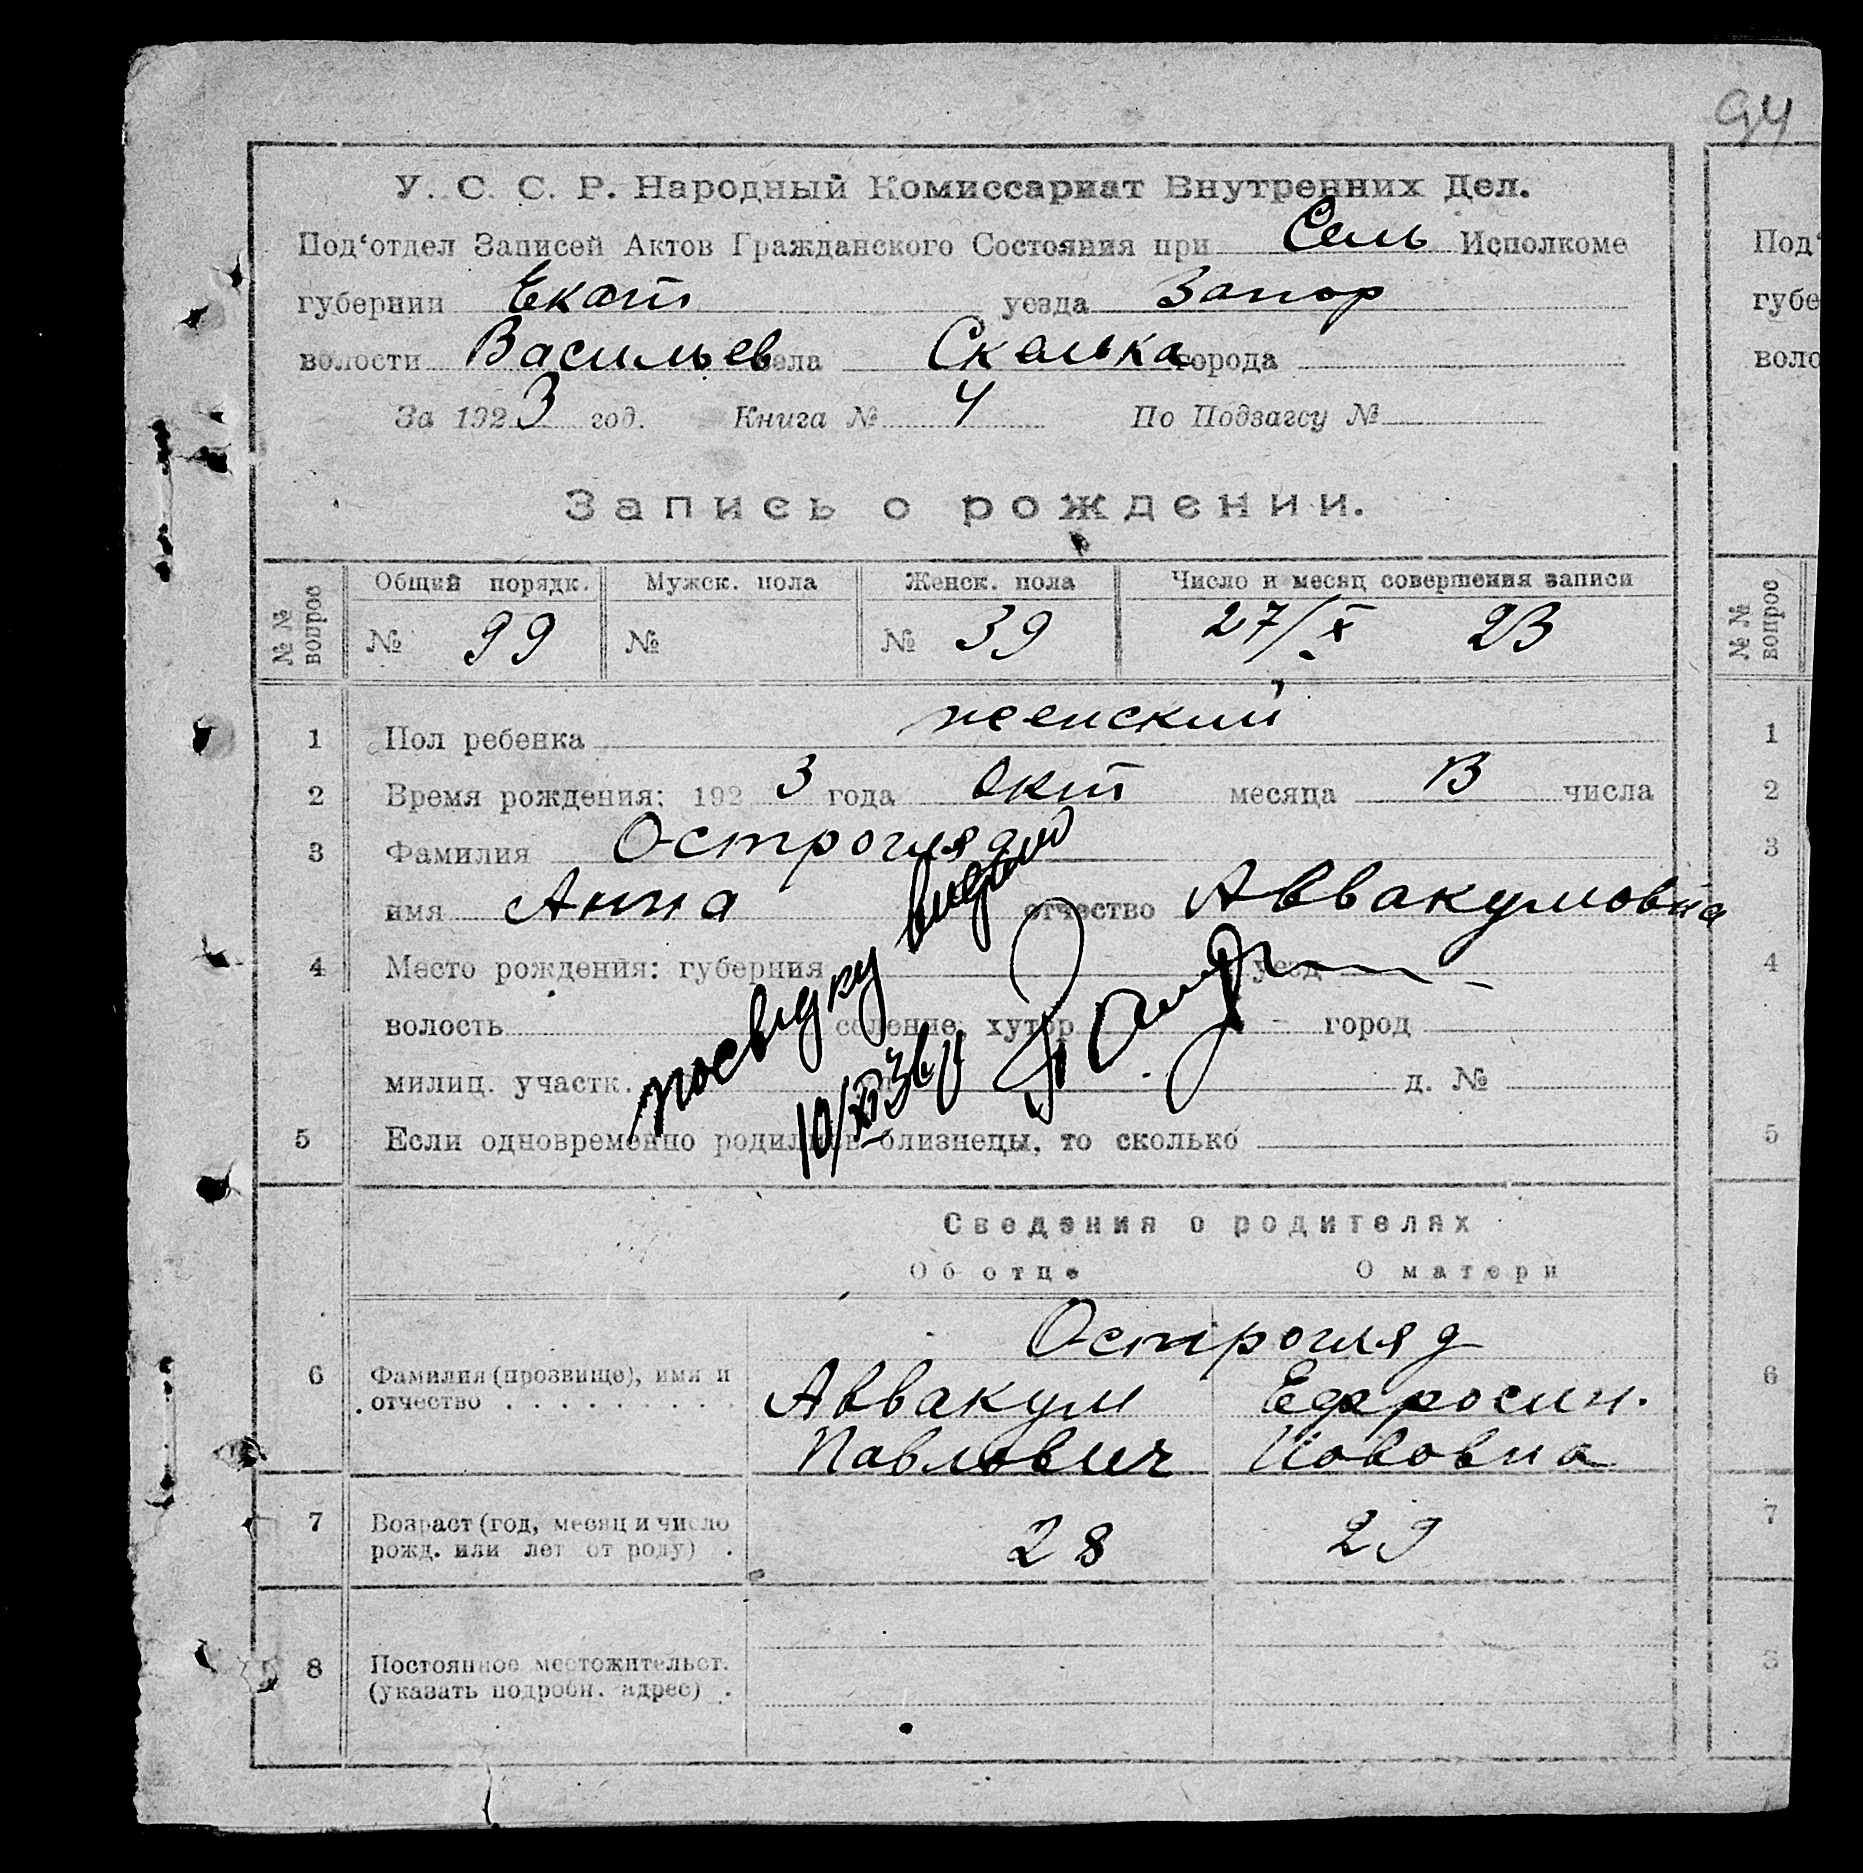 94
У. С. С. Р. Народный Комиссариат Внутренних Дел.
Под‘отдел Записей Актов Гражданского Состояния при Сель Исполкоме
губернии Екат уезда Запор
волости Васильев села Скелька города
За 1923 год. Книга № 4 По Подзагсу №
Запись о рождении.
№ № вопрос Общий порядк. Мужск. пола Женск. пола Число и месяц совершения записи
№ 99 № № 39 27/X 23
1 Пол ребенка женский
2 Время рождения: 1923 года Окт месяца 13 числа
3 ФамилияОстрогляд
имя Анна отчество Аввакумовна
4 Место рождения: губерния уезд
волость селение, хутор город
милиц. участк. д. №
посвідку видано
10/XII 36 р
5 Если одновременно родились близнецы, то сколько
Сведения о родителях
Об отце О матери
Острогляд
6 Фамилия (прозвище), имя и отчество Аввакум Ефросин.
Павлович Иововна
7 Возраст (год, месяц и число рожд. или лет от роду) 28 29
8 Постоянное местожительст. (указать подробн. адрес)
Под‘
губе
воло
№ № вопрос
1
2
3
4
5
6
7
8